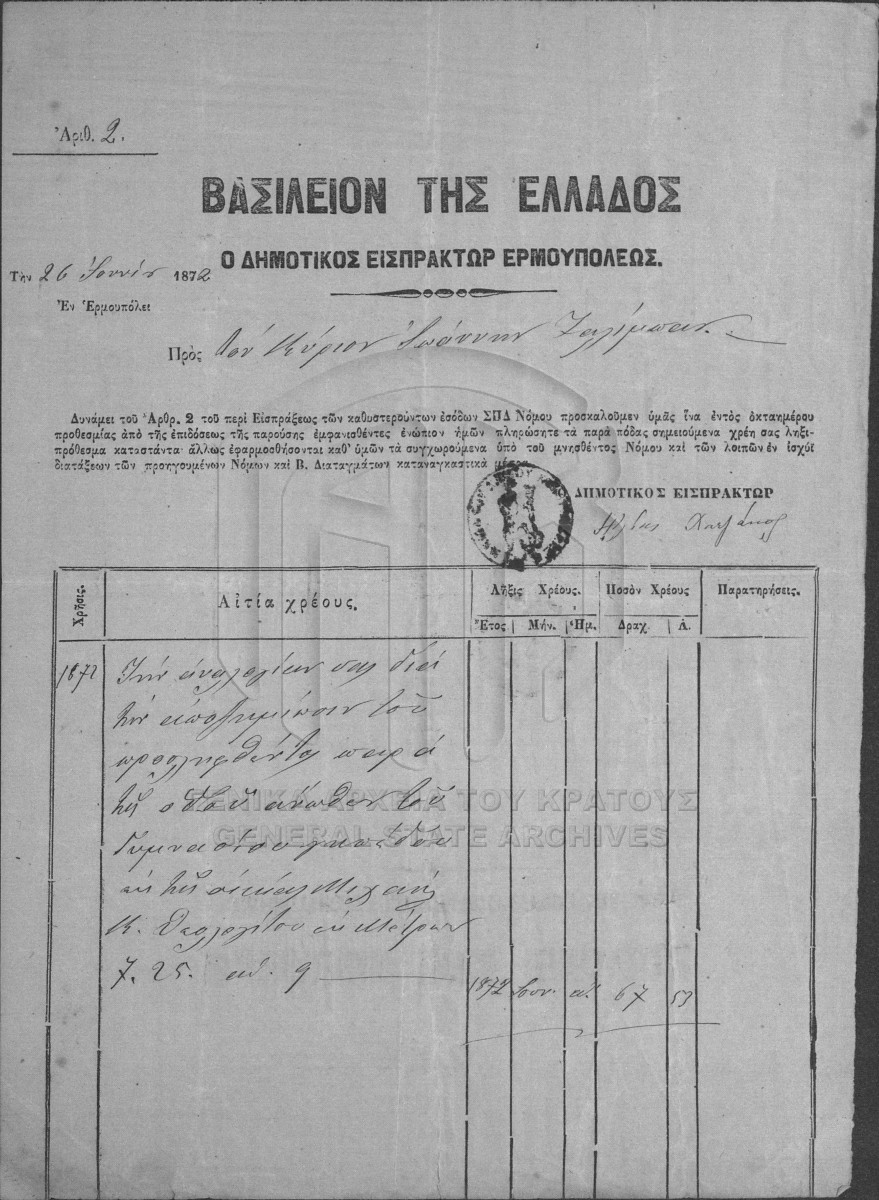 Ἀριθ. 2.
ΒΑΣΙΛΕΙΟΝ ΤΗΣ ΕΛΛΑΔΟΣ
Ο ΔΗΜΟΤΙΚΟΣ ΕΙΣΠΡΑΚΤΩΡ ΕΡΜΟΥΠΟΛΕΩΣ.
Τὴν 26 Ἰουνίου 1872
Ἐν Ἑρμουπόλει
Πρὸς τὸν Κύριον Ἰωάννην
Δυνάμει τοῦ Ἄρθρ. 2 τοῦ περὶ Εἰσπράξεως τῶν καθυστερούντων ἐσόδων ΣΠΔ Νόμου προσκαλοῦμεν ὑμᾶς ἵνα ἐντὸς ὀκταημέρου
προθεσμίας ἀπὸ τῆς ἐπιδόσεως τῆς παρούσης ἐμφανισθέντες ἐνώπιον ἡμῶν πληρώσητε τὰ παρὰ πόδας σημειούμενα χρέη σας ληξι-
πρόθεσμα καταστάντα· ἄλλως ἐφαρμοσθήσονται καθ' ὑμῶν τὰ συγχωρούμενα ὑπὸ τοῦ μνησθέντος Νόμου καὶ τῶν λοιπῶν ἐν ἰσχύϊ
διατάξεων τῶν προηγουμένων Νόμων καὶ Β. Διαταγμάτων καταναγκαστικὰ μέτρα.
ΔΗΜΟΤΙΚΟΣ ΕΙΣΠΡΑΚΤΩΡ
Χρῆσις. Αἰτία χρέους. Λῆξις Χρέους. Ποσὸν Χρέους Παρατηρήσεις.
Ἔτος Μήν. Ἡμ. Δραχ. Λ.
1872 Τὴν ἀναλογίαν σας διὰ
τὴν ἀποζημίωσιν τοῦ
προσληφθέντος παρὰ
τῆς ὁδοῦ ἄνωθεν τοῦ
Γυμνασίου γηπέδου
ἐκ τῆς οἰκίας Μιχαὴλ
Κ. Θεολογίτου ἐκ Μέτρων
7. 25. 9
1872 Ἰουν. 67 53
ΓΕΝΙΚΑ ΑΡΧΕΙΑ ΤΟΥ ΚΡΑΤΟΥΣ
GENERAL STATE ARCHIVES